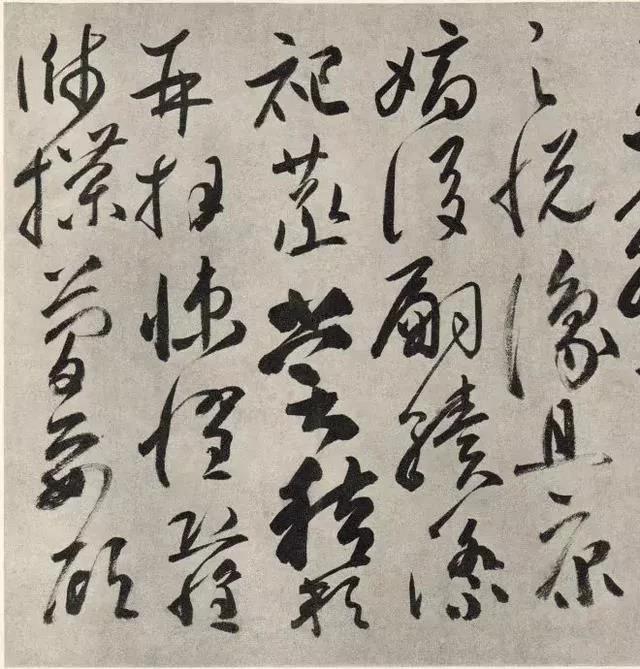 足悅豫且康
嫡後嗣續祭
祀蒸嘗稽顙
再拜悚懼恐惶
牋牒簡要顧